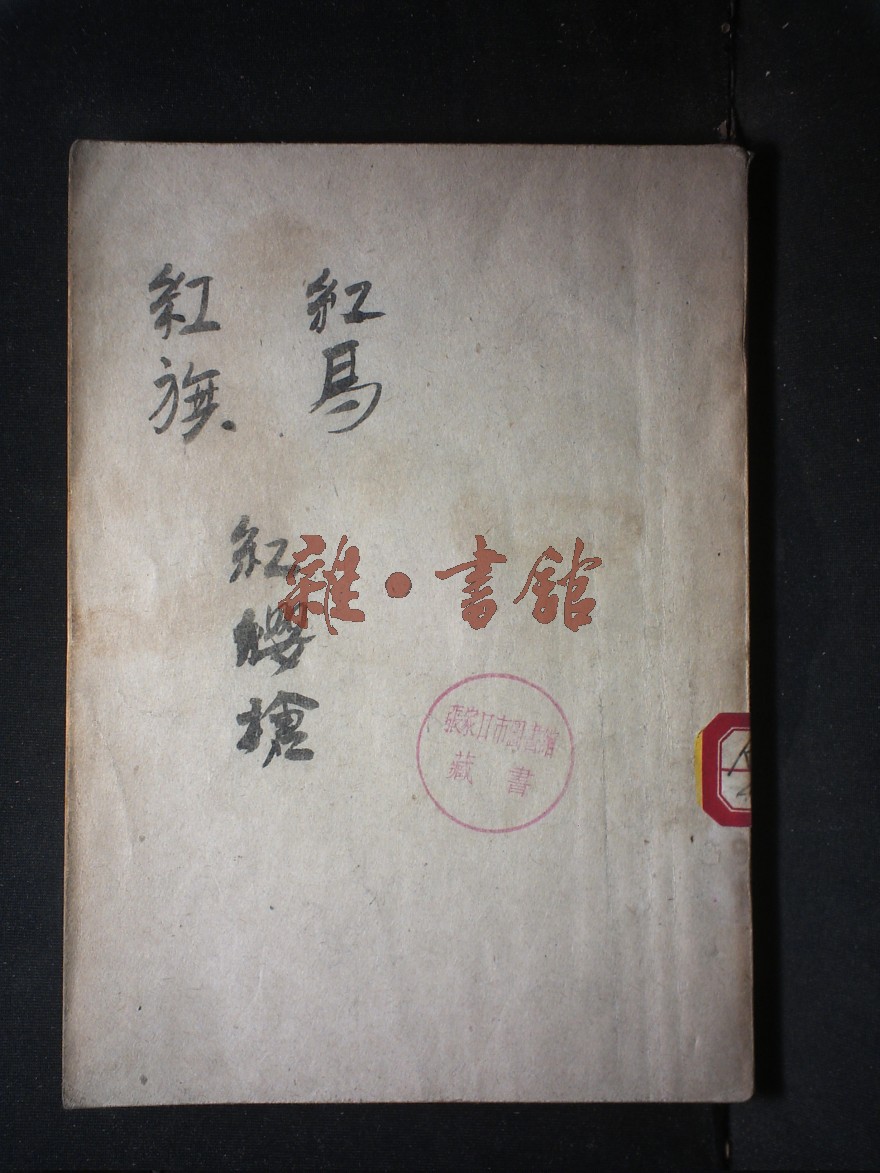 紅馬
紅旗
紅纓槍
雜·書館
張家口市圖書館
藏書